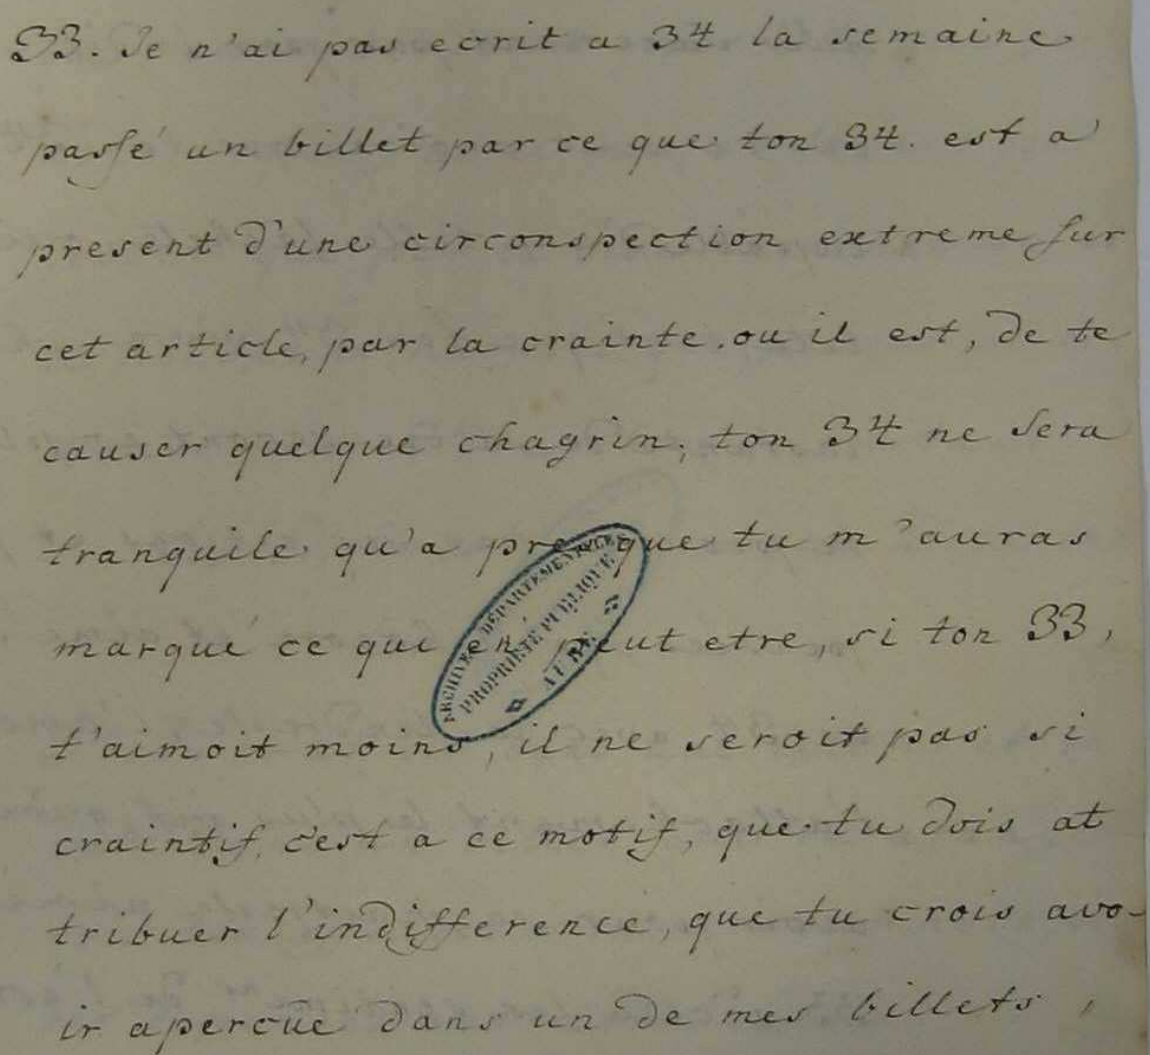 33. Je n'ai pas ecrit a 34 la semaine
passé un billet par ce que ton 34. est a
present d'une circonspection extreme sur
cet article, par la crainte, ou il est, de te
causer quelque chagrin; ton 34 ne sera
tranquile qu'a pres que tu m'auras
marqué ce qui en peut etre, si ton 33,
t'aimoit moins, il ne seroit pas si
craintif, c'est a ce motif, que tu dois at
tribuer l'indifference, que tu crois avo-
ir apercüe dans un de mes billets,
ARCHIVES DÉPARTEMENTALES
PROPRIÉTÉ PUBLIQUE
AUBE